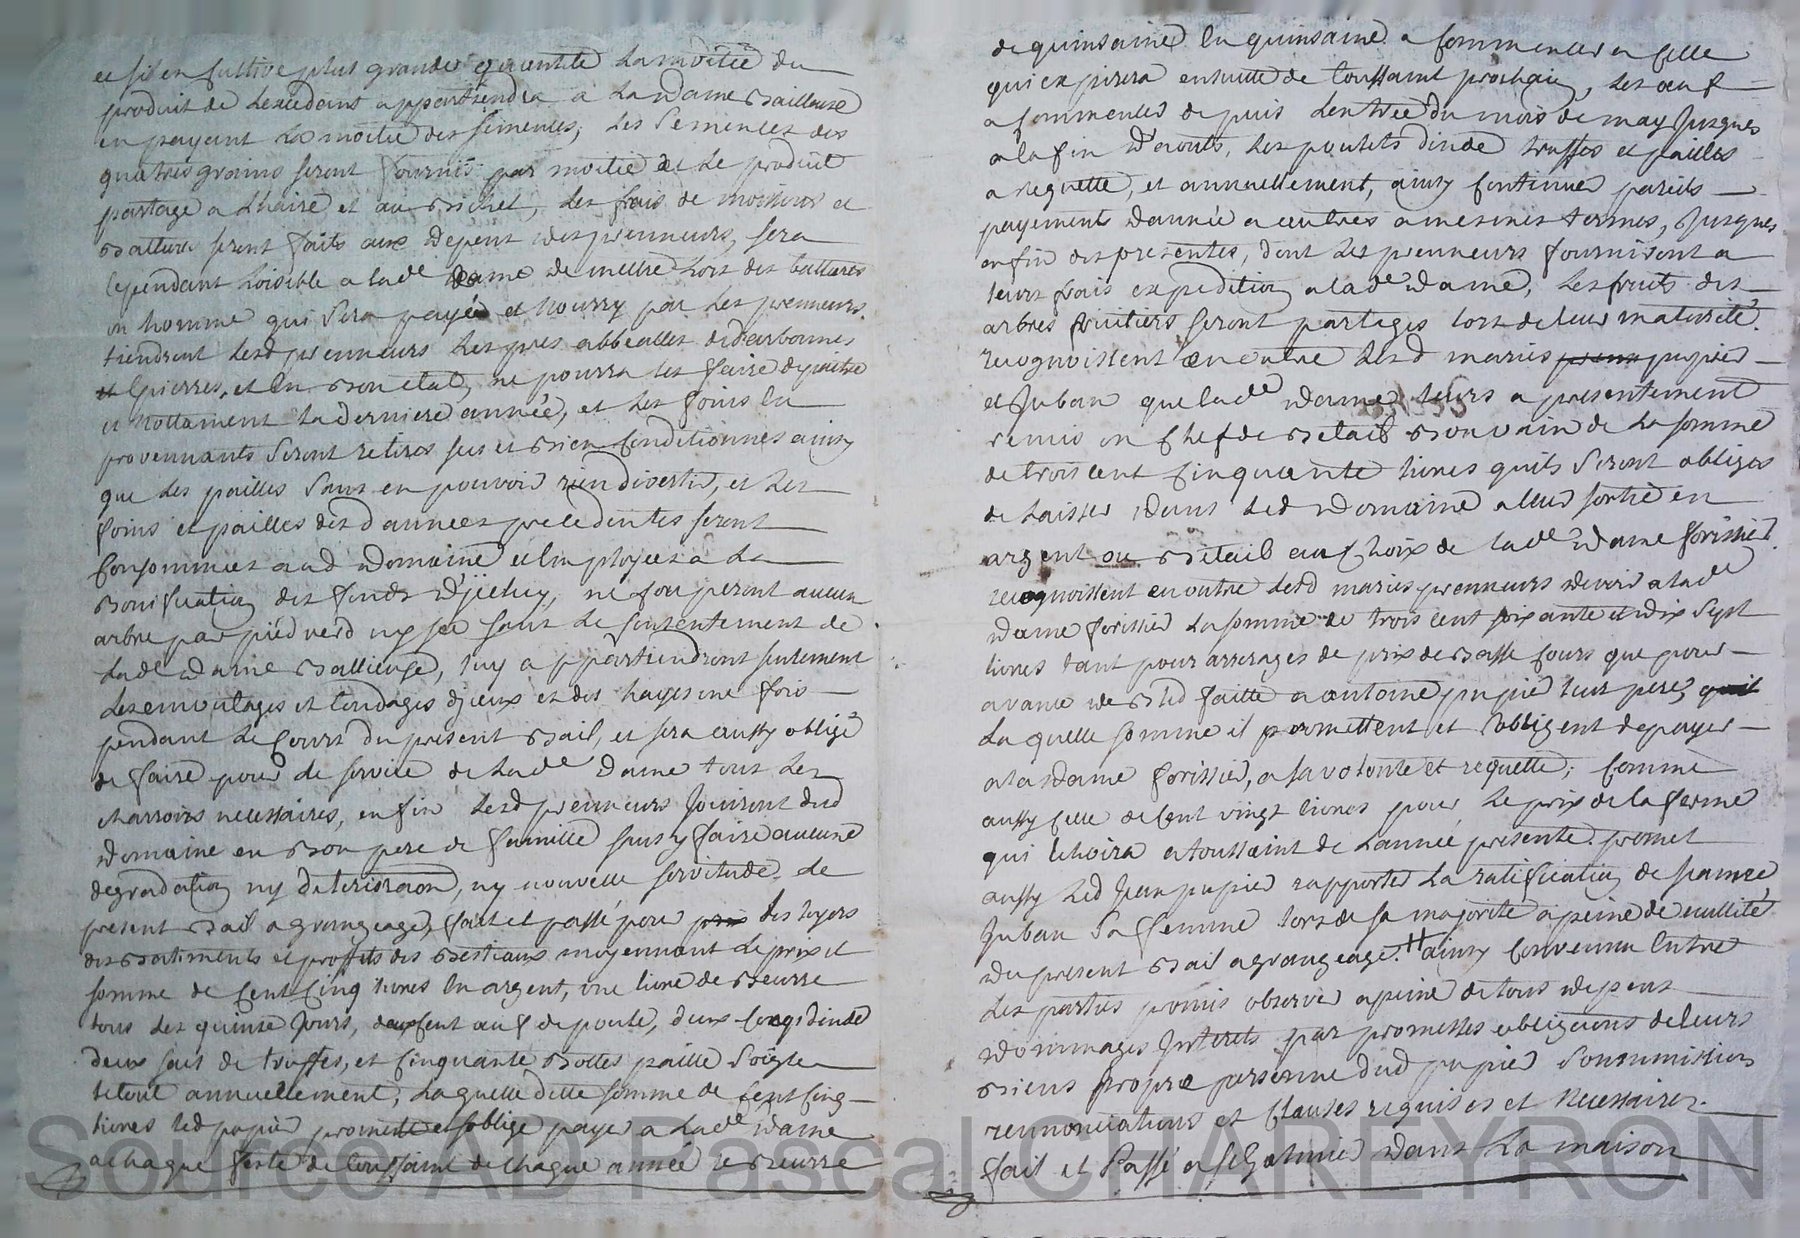 et sil en cultive plus grande quantité la moitié du
produit de lexcedant appartiendra a la dame bailleuse
en payant la moitié des semences, les semences des
quatres grains seront fournis par moitié et le produit
partagé a lhaire et au bichet, les frais de moissons et
batture seront faits aux depent des prenneurs, sera
cependant loisible a lade dame de mettre lors des battures
un homme qui sera payé et nourry par les prenneurs.
tiendront lesd prenneurs les pres abbealles
et Epierres, et en bon etat, ne pourra les faire depaitre
et nottament la derniere année, et les foins en
provennants seront retires secs et bien conditionnés ainsy
que les pailles sans en pouvoir rien divertir, et les
foins et pailles desd annees precedentes seront
consommes aud domaine et employes a la
bonification des fonds dyceluy, ne couperont aucun
arbre par pied verd ny sec sans le consentement de
lade dame ballieuse, luy appartiendront seulement
les emontages et tondages dyceux et des hayes une fois
pendant le cours du present bail, et sera aussy obligé
de faire pour le service de lade dame tous les
charrois necessaires, enfin lesd prenneurs jouiront dud
domaine en bon pere de famille sans y faire aucune
degradation ny deterioraon, ny nouvelle servitude, le
present bail a grangeage, fait et passé pour prix des loyers
des bastiments et proffits des bestiaux moyennant le prix et
somme de cent cinq livres en argent, une livre de beurre
tous les quinse jours, deux cent œuf de poule, deux coqs dinde
deux sacs de truffes, et cinquante bottes paille soigle
letout annuellement, laquelle ditte somme de cent cinq
livres led papier promet et soblige payer a lade dame
a chaque feste de toussaint de chaque année le beurre
de quinsaine en quinsaine a commencer a celle
qui expirera ensuitte de toussaint prochain, les œuf
a commencer depuis lentrée du mois de may jusques
a la fin daouts, les poulets dinde truffes et pailles
a requette, et annuellement, ainsy continuer pareils
payements dannée a autres a mesmes termes, jusques
en fin des presentes, dont les prenneurs fourniront a
leurs frais expedition a lade dame, les fruits des
arbres fruitiers seront partages lors de leur maturité.
recognoissent en outre lesd maries papier
et Juban que lade dame leurs a presentement
remis un chef de betail bouvain de la somme
de trois cent cinquante livres quils seront obliges
de laisser dans led domaine a leur sortie en
argent ou betail au choix de lade dame forissier.
recognoissent en outre lesd maries prenneurs devoir a lade
dame forissier la somme de trois cent soixante et dix sept
livres tant pour arrerages de prix de basse cours que pour
avance de bled faitte a antoine papier leur pere,
laquelle somme il promettent et sobligent de payer
a la dame forissier, a sa volonté et requette, comme
aussy celle de cent vingt livres pour le prix de la ferme
qui echoira a toussaint de lannée presente. promet
aussy led Jean papier rapporter la ratification de
Juban sa femme lors de sa majorité a peine de nullité
du present bail a grangeage. ainsy convenu entre
les parties promis observer a peine de tous depens
dommages interets par promesses obligaons de leurs
biens propre personne dud papier soummissions
renonciations et clauses requises et necessaires.
fait et passé a st Galmier dans la maison
Source AD Pascal CHAREYRON